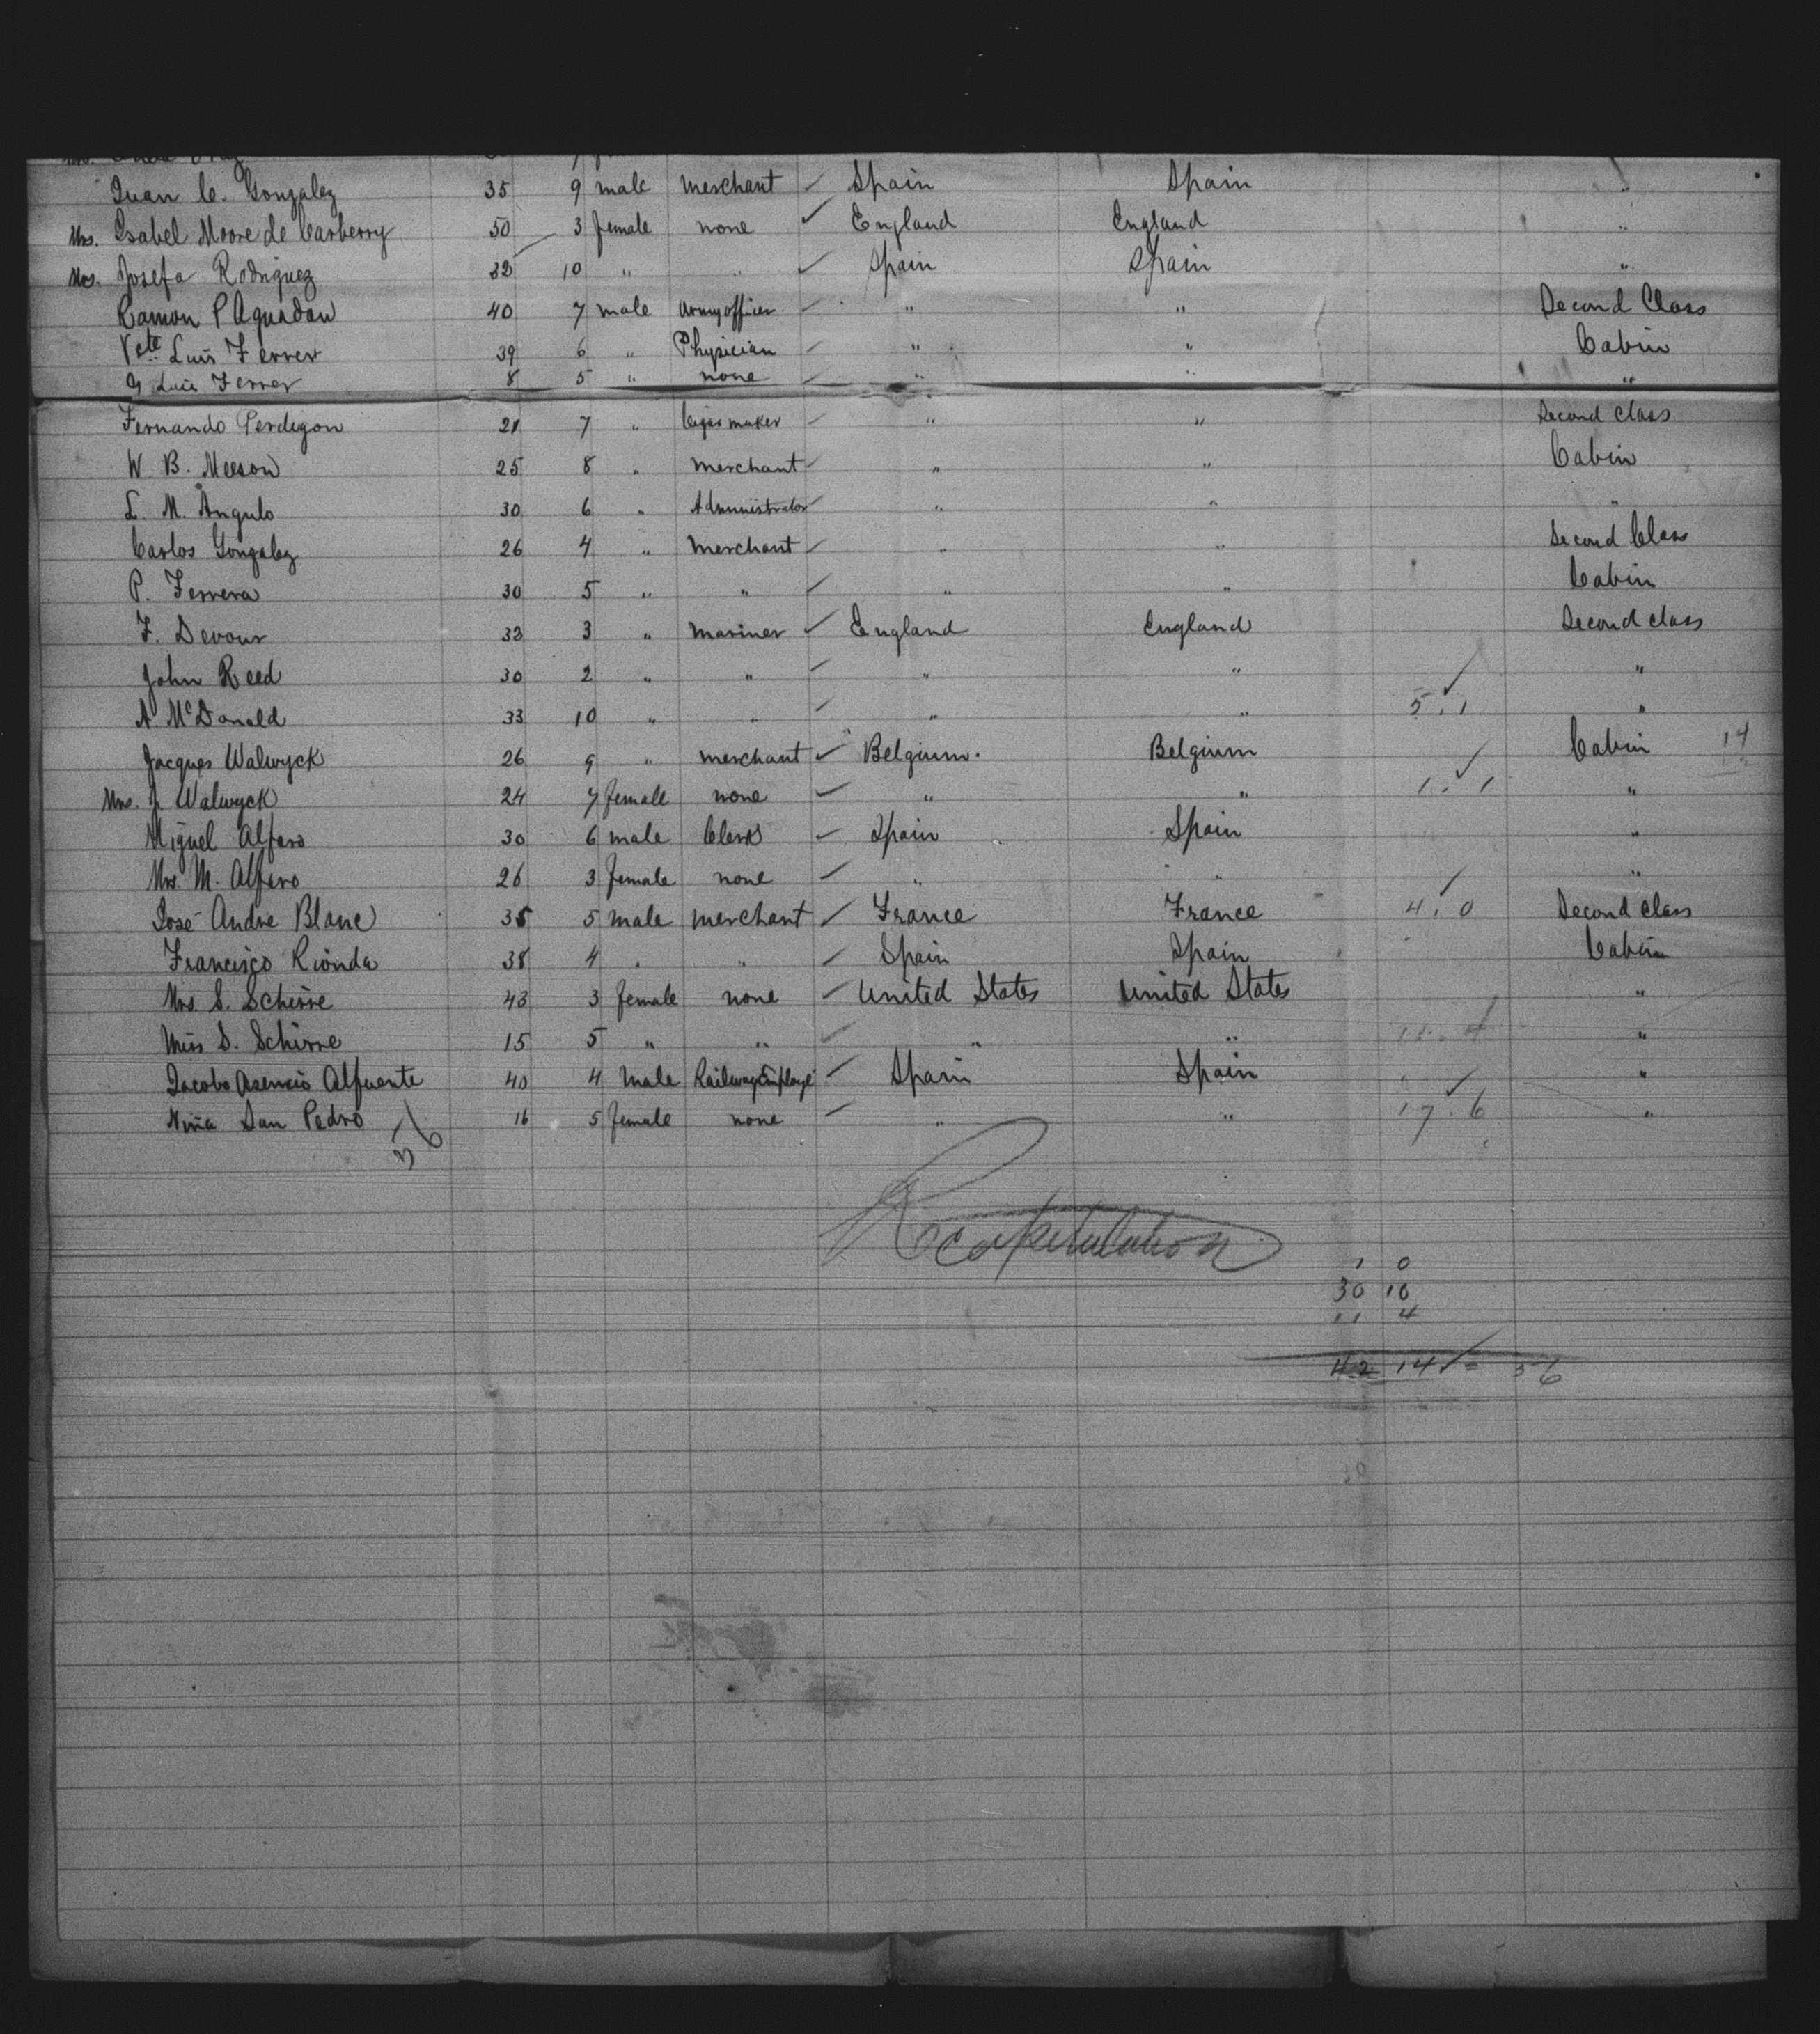 Juan C. Gonzalez 35 9 male merchant ✓ Spain Spain "
Mrs. Isabel Moore de Carberry 50 3 female none ✓ England England "
Mrs. Josefa Rodriguez 32 10 " " ✓ Spain Spain "
Ramon P Aguadau 40 7 male Army officer ✓ " " Second Class
Vcte Luis Ferrer 39 6 " Physician ✓ " " Cabin
G Luis Ferrer 8 5 " none ✓ " " "
Fernando Perdigon 21 7 " Cigar maker ✓ " " Second class
W. B. Meeson 25 8 " merchant ✓ " " Cabin
L. M. Angulo 30 6 " Administrator ✓ " " "
Carlos Gonzalez 26 4 " merchant ✓ " " Second Class
P. Ferrera 30 5 " " ✓ " " Cabin
F. Devour 32 3 " mariner ✓ England England Second class
John Reed 30 2 " " ✓ " " "
A. McDonald 33 10 " " ✓ " " 5.1 ✓ "
Jacques Walwyck 26 9 " merchant ✓ Belgium. Belgium Cabin 14
Mrs. J. Walwyck 24 7 female none ✓ " " 1.1 ✓ "
Miguel Alfaro 30 6 male Clerk ✓ Spain Spain "
Mrs. M. Alfaro 26 3 female none ✓ " " "
José Andre Blanc 35 5 male merchant ✓ France France 4.0 ✓ Second Class
Francisco Rionda 38 4 " " ✓ Spain Spain Cabin
Mrs S. Schirre 43 3 female none ✓ United States United States "
Miss S. Schirre 15 5 " " ✓ " " "
Jacobo Asencio Alfuente 40 4 male Railway Employé ✓ Spain Spain "
Niña San Pedro 16 5 female none ✓ " " 17.6 ✓ "
56
Recapitulation
1 0
30 10
11 4
42 14 ✓ = 56